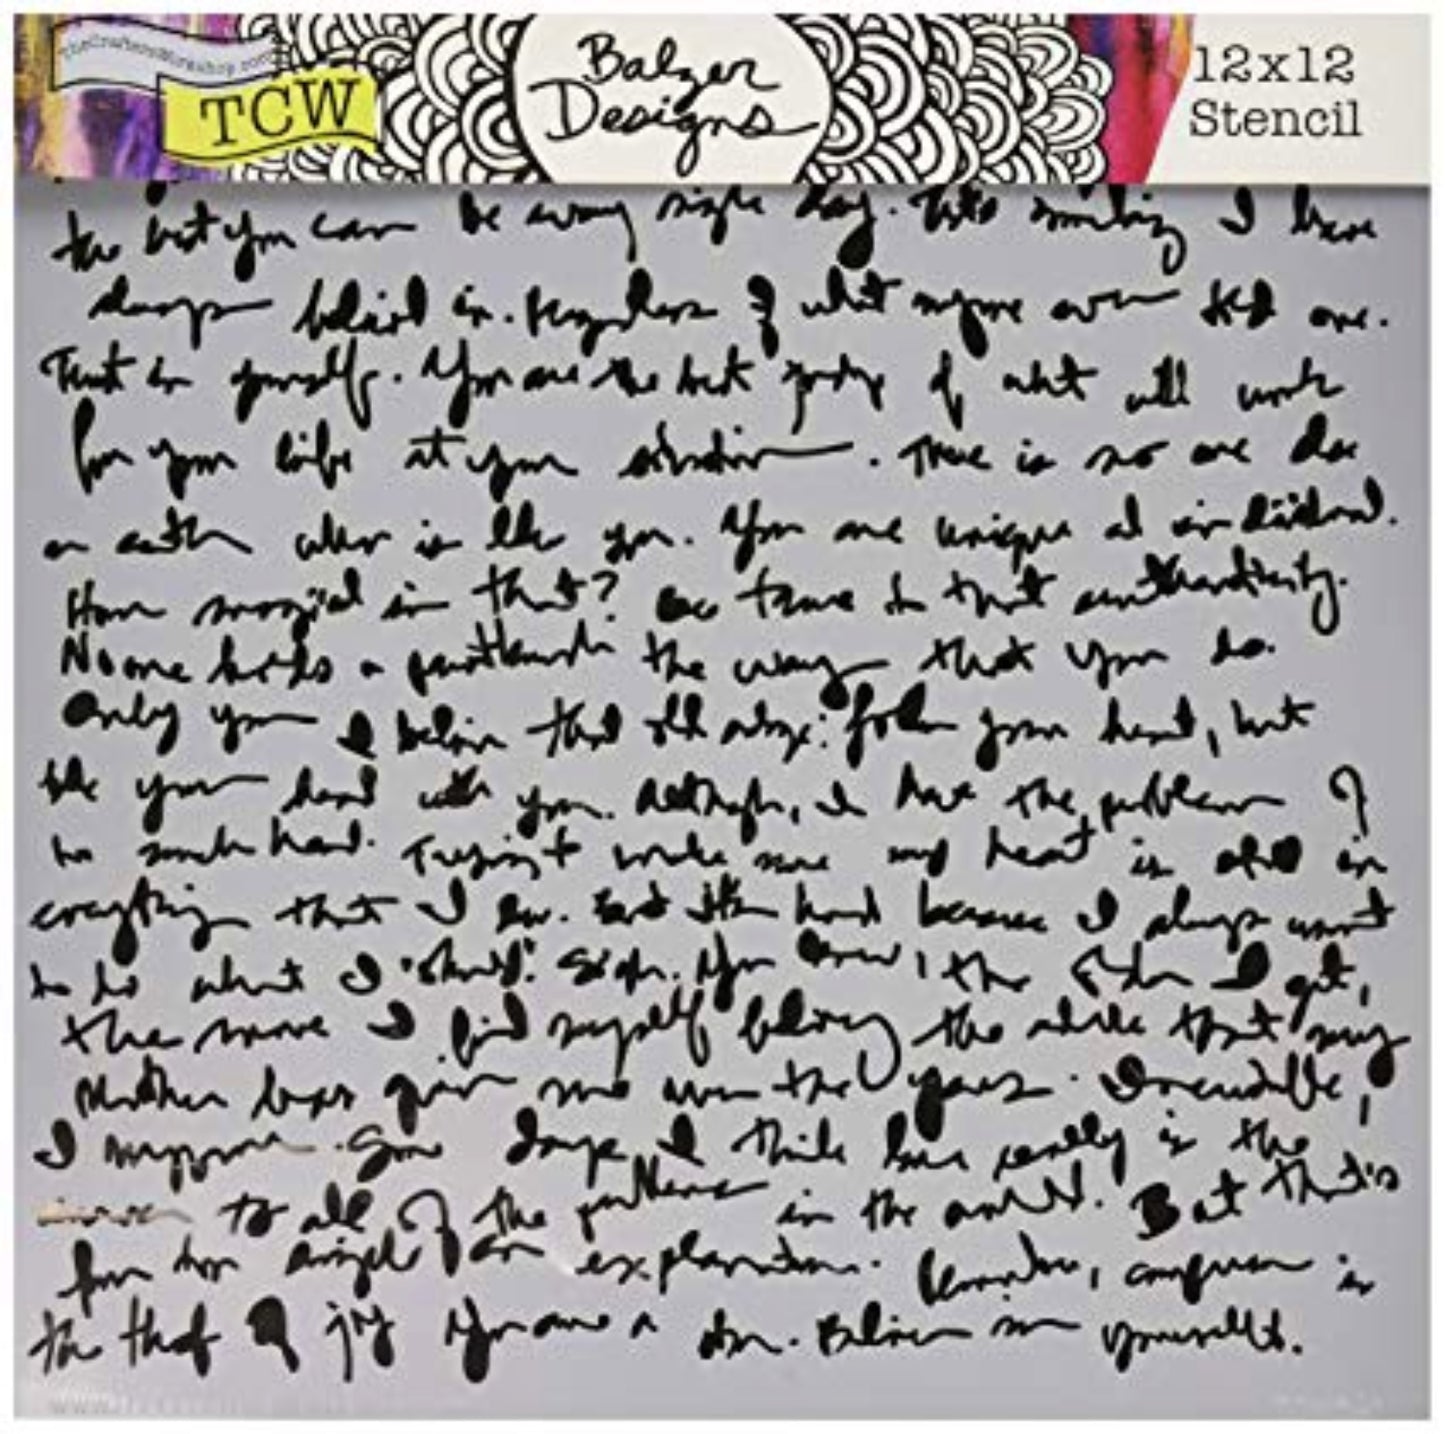 TheCraftersWorkshop.com
TCW
Balzer
Designs
12x12
Stencil
the best you can be every single day. I have
always in. of what anyone one.
Trust in yourself. You are the best judge of what will work
for your life at your There is no one else
on earth who is like you. You are unique and individual.
How magical is that? to that authenticity.
No one holds a the way that you do.
Only you I believe that old adage: follow your heart, but
take your head with you. Although, I have the problem of
too much head. Trying to make sure my heart is also in
everything that I do. But it's hard because I always want
to do what I "should". Sigh. You know, the older I get,
the more I find myself following the advice that my
mother has given me over the years. Incredible,
I suppose. Some days I think love really is the
answer to all of the problems in the world. But that's
far too simple of an explanation. Remember, comparison is
the thief of joy. You are a star. Believe in yourself.